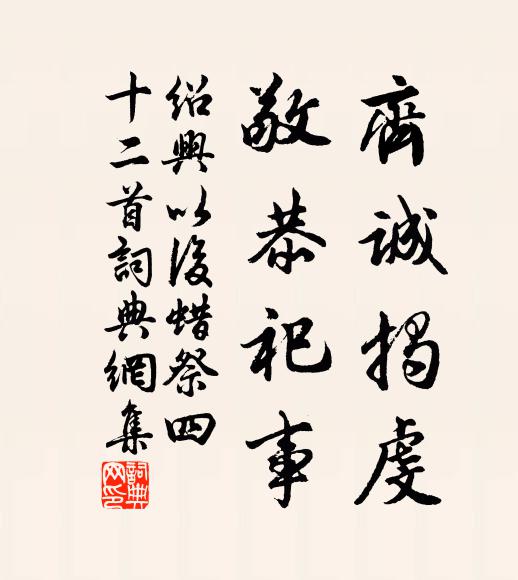 齊誠揭虔
敬恭祀事
紹興以後蜡祭四
十二首詞典網集
詞典網印